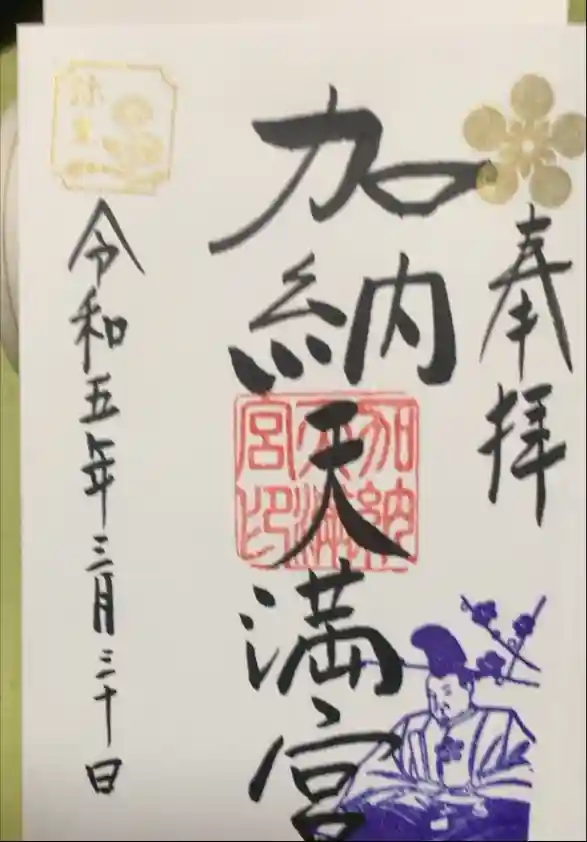 奉拝
加納天満宮
加納
天満
宮印
令和五年三月三十日